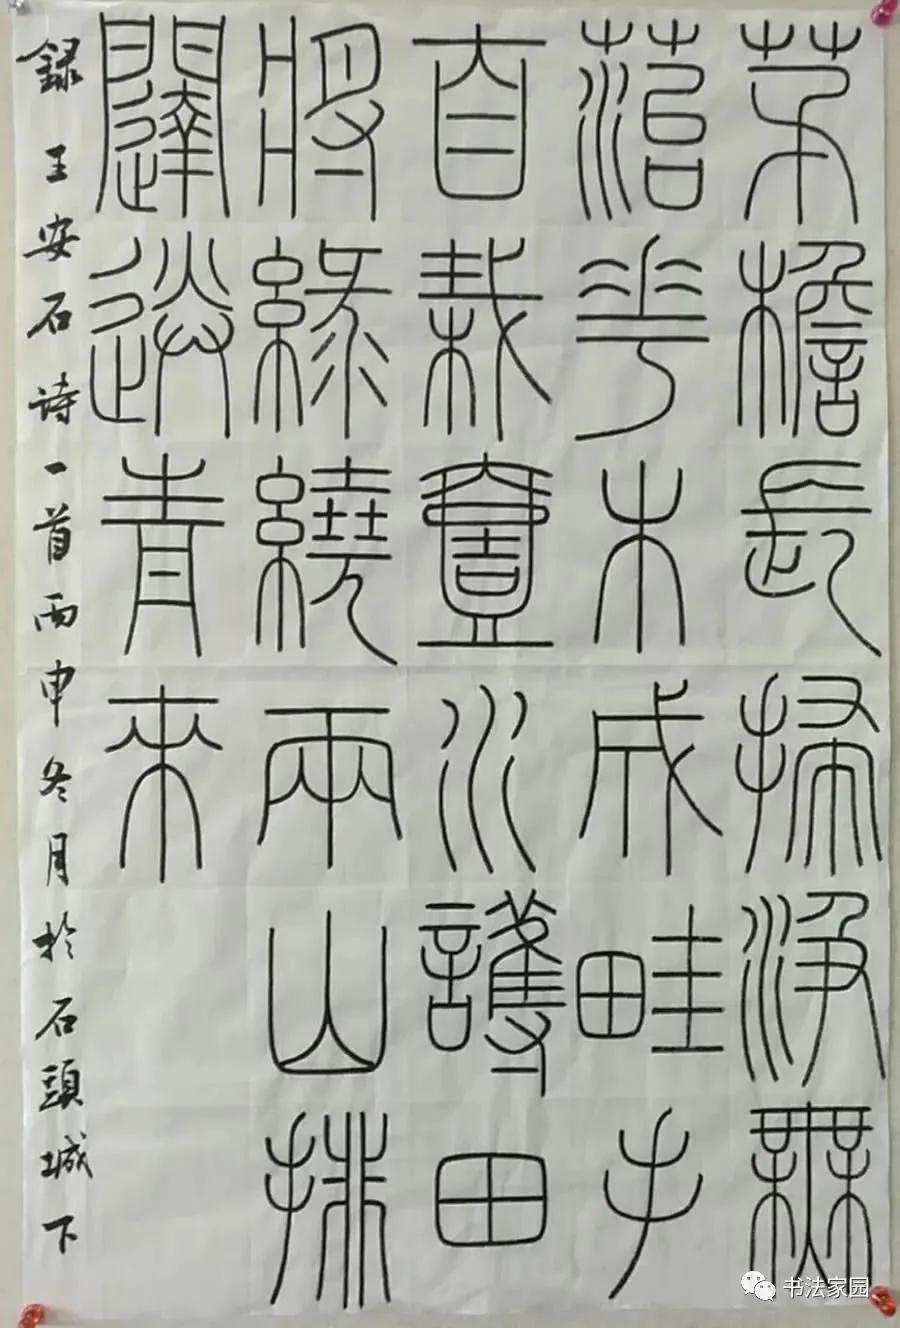 茅檐長掃淨無
菭華木成畦手
自栽壹水護田
將綠繞兩山排
闥送青來
録王安石诗一首丙申冬月於石頭城下
书法家园